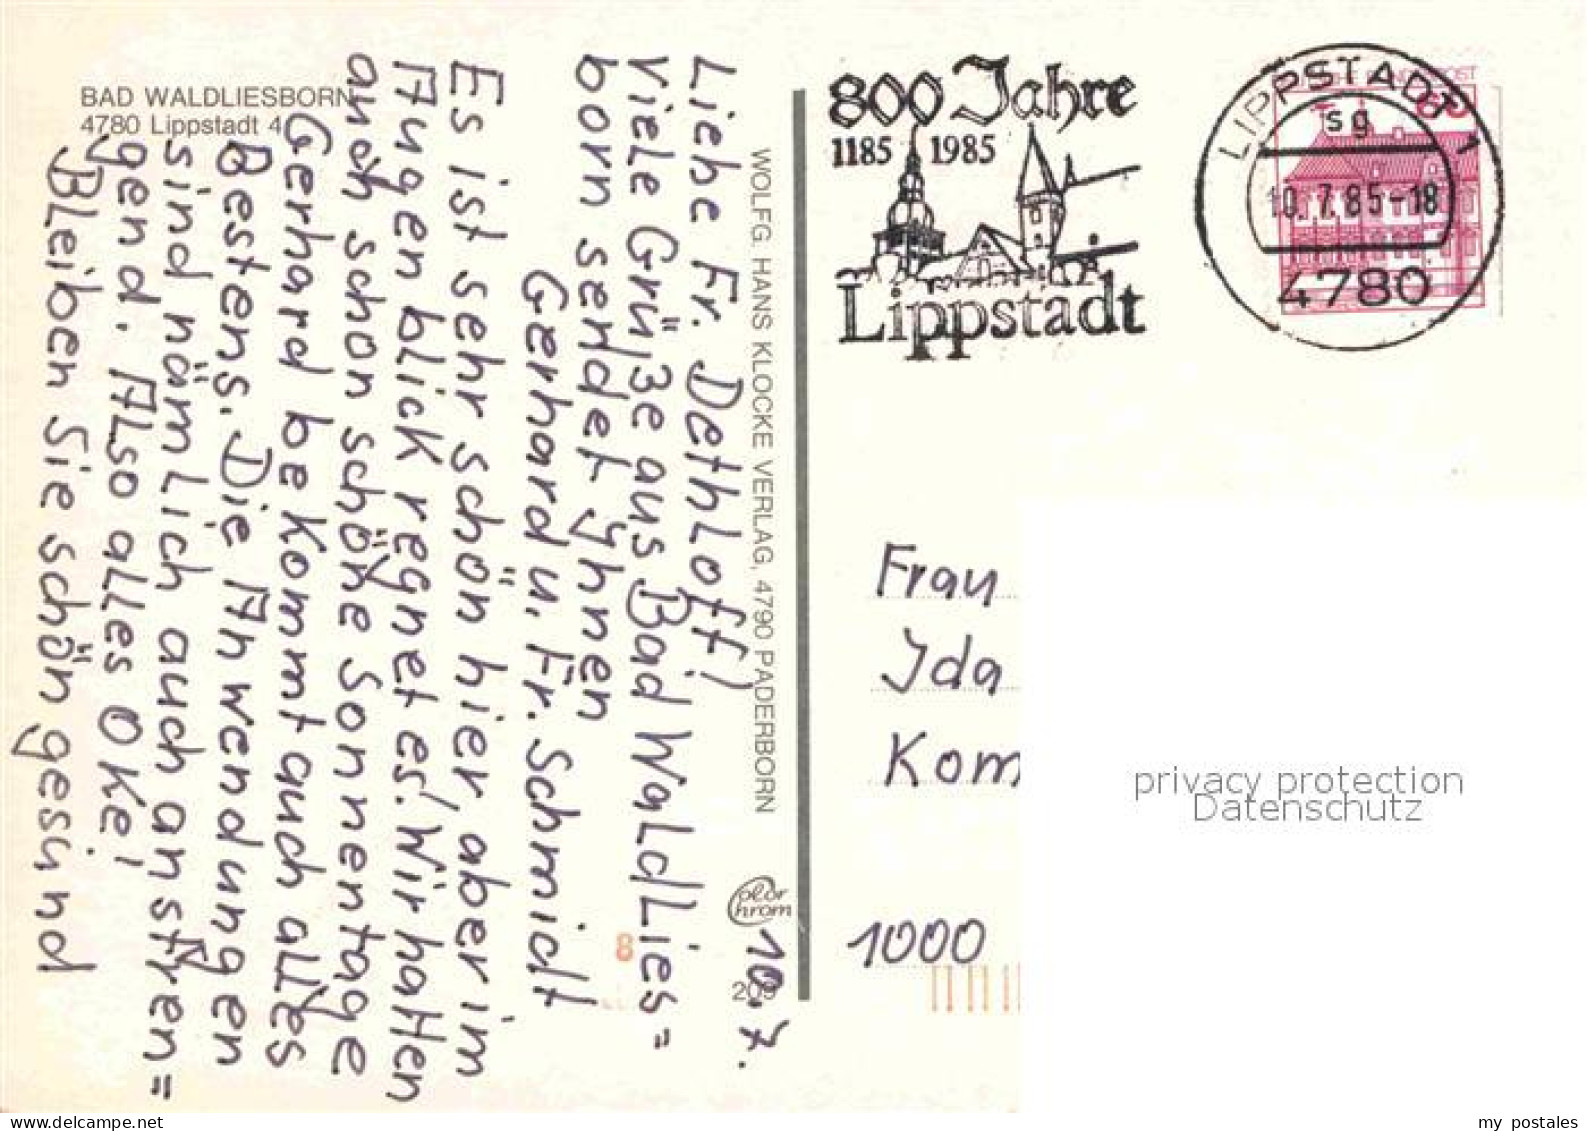 BAD WALDLIESBORN
4780 Lippstadt 4
10.7.
Liebe Fr. Dethloff!
Viele Grüße aus Bad Waldlies=
born sendet Ihnen
Gerhard u. Fr. Schmidt
Es ist sehr schön hier, aber im
Augenblick regnet es! Wir hatten
auch schon schöne Sonnentage
Gerhard bekommt auch alles
Bestens. Die Anwendungen
sind nämlich auch anstren=
gend. Also alles Oke!
Bleiben Sie schön gesund
WOLFG. HANS KLOCKE VERLAG, 4790 PADERBORN
Color
Chrom
8
800 Jahre
1185 1985
Lippstadt
LIPPSTADT 1
sg
10.7.85-18
4780
Frau
Ida
Kom
1000
privacy protection
Datenschutz
my postales